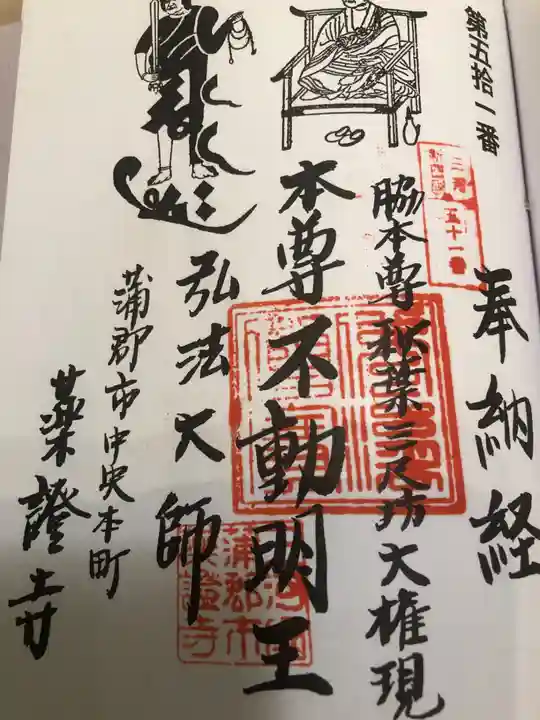 第五拾一番
三河
新四国
五十一番
奉納経
脇本尊 秋葉三尺坊大権現
本尊不動明王
弘法大師
蒲郡市中央本町
薬證寺
蒲郡市
薬證寺